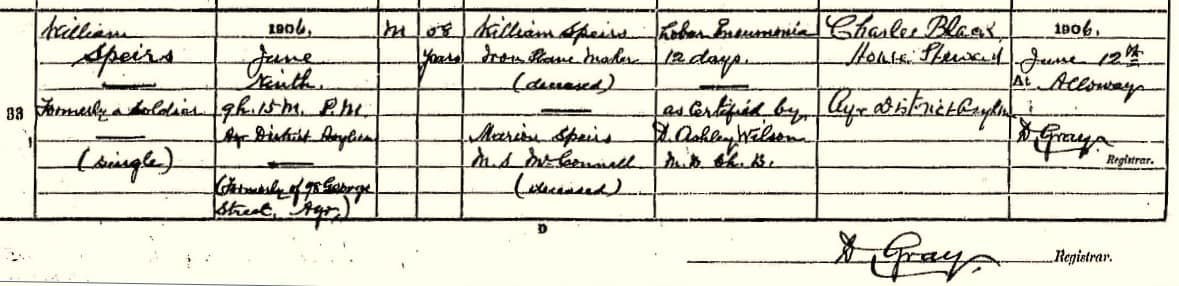 William
Speirs
33
Formerly a Soldier
(Single)
1906,
June
Ninth.
9h. 15 M. P.M.
Ayr District Asylum
(Formerly of 98 George
Street, Ayr,)
M
58
Years
William Speirs
Iron Plane Maker
(deceased)
Marion Speirs
M.S. McConnell
(deceased)
Lobar Pneumonia
12 days.
as Certified by
D. Ashley Wilson
M.B. Ch. B.
Charles Black
House Steward
Ayr District Asylum
1906.
June 12th
At Alloway
D Gray
Registrar.
D
D Gray.
Registrar.